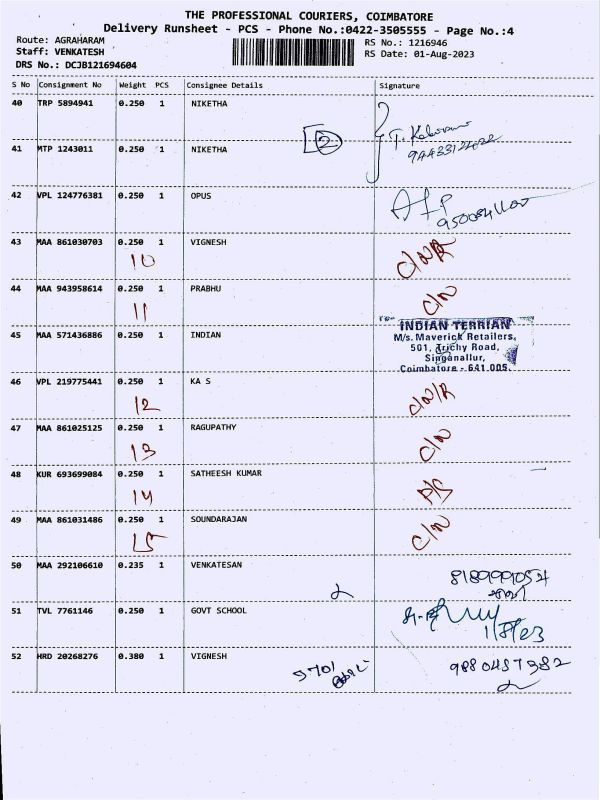 THE PROFESSIONAL COURIERS, COIMBATORE
Delivery Runsheet - PCS - Phone No.:0422-3505555 - Page No.:4
Route: AGRAHARAM
Staff: VENKATESH
DRS No.: DCJB121694604
RS No.: 1216946
RS Date: 01-Aug-2023
S No Consignment No Weight PCS Consignee Details Signature
40 TRP 5894941 0.250 1 NIKETHA
2
41 MTP 1243011 0.250 1 NIKETHA
42 VPL 124776381 0.250 1 OPUS
43 MAA 861030703 0.250 1 VIGNESH
10 C/N/R
44 MAA 943958614 0.250 1 PRABHU
11 C/N
45 MAA 571436886 0.250 1 INDIAN
INDIAN TERRIAN
M/s. Maverick Retailers,
501, Trichy Road,
Singanallur,
Coimbatore - 641 005.
46 VPL 219775441 0.250 1 KA S
12 C/N/R
47 MAA 861025125 0.250 1 RAGUPATHY
13 C/N
48 KUR 693699084 0.250 1 SATHEESH KUMAR
14 P/S
49 MAA 861031486 0.250 1 SOUNDARAJAN
15 C/N
50 MAA 292106610 0.235 1 VENKATESAN
8189991054
51 TVL 7761146 0.250 1 GOVT SCHOOL
1/8/23
52 HRD 20268276 0.380 1 VIGNESH
5701 9880457382